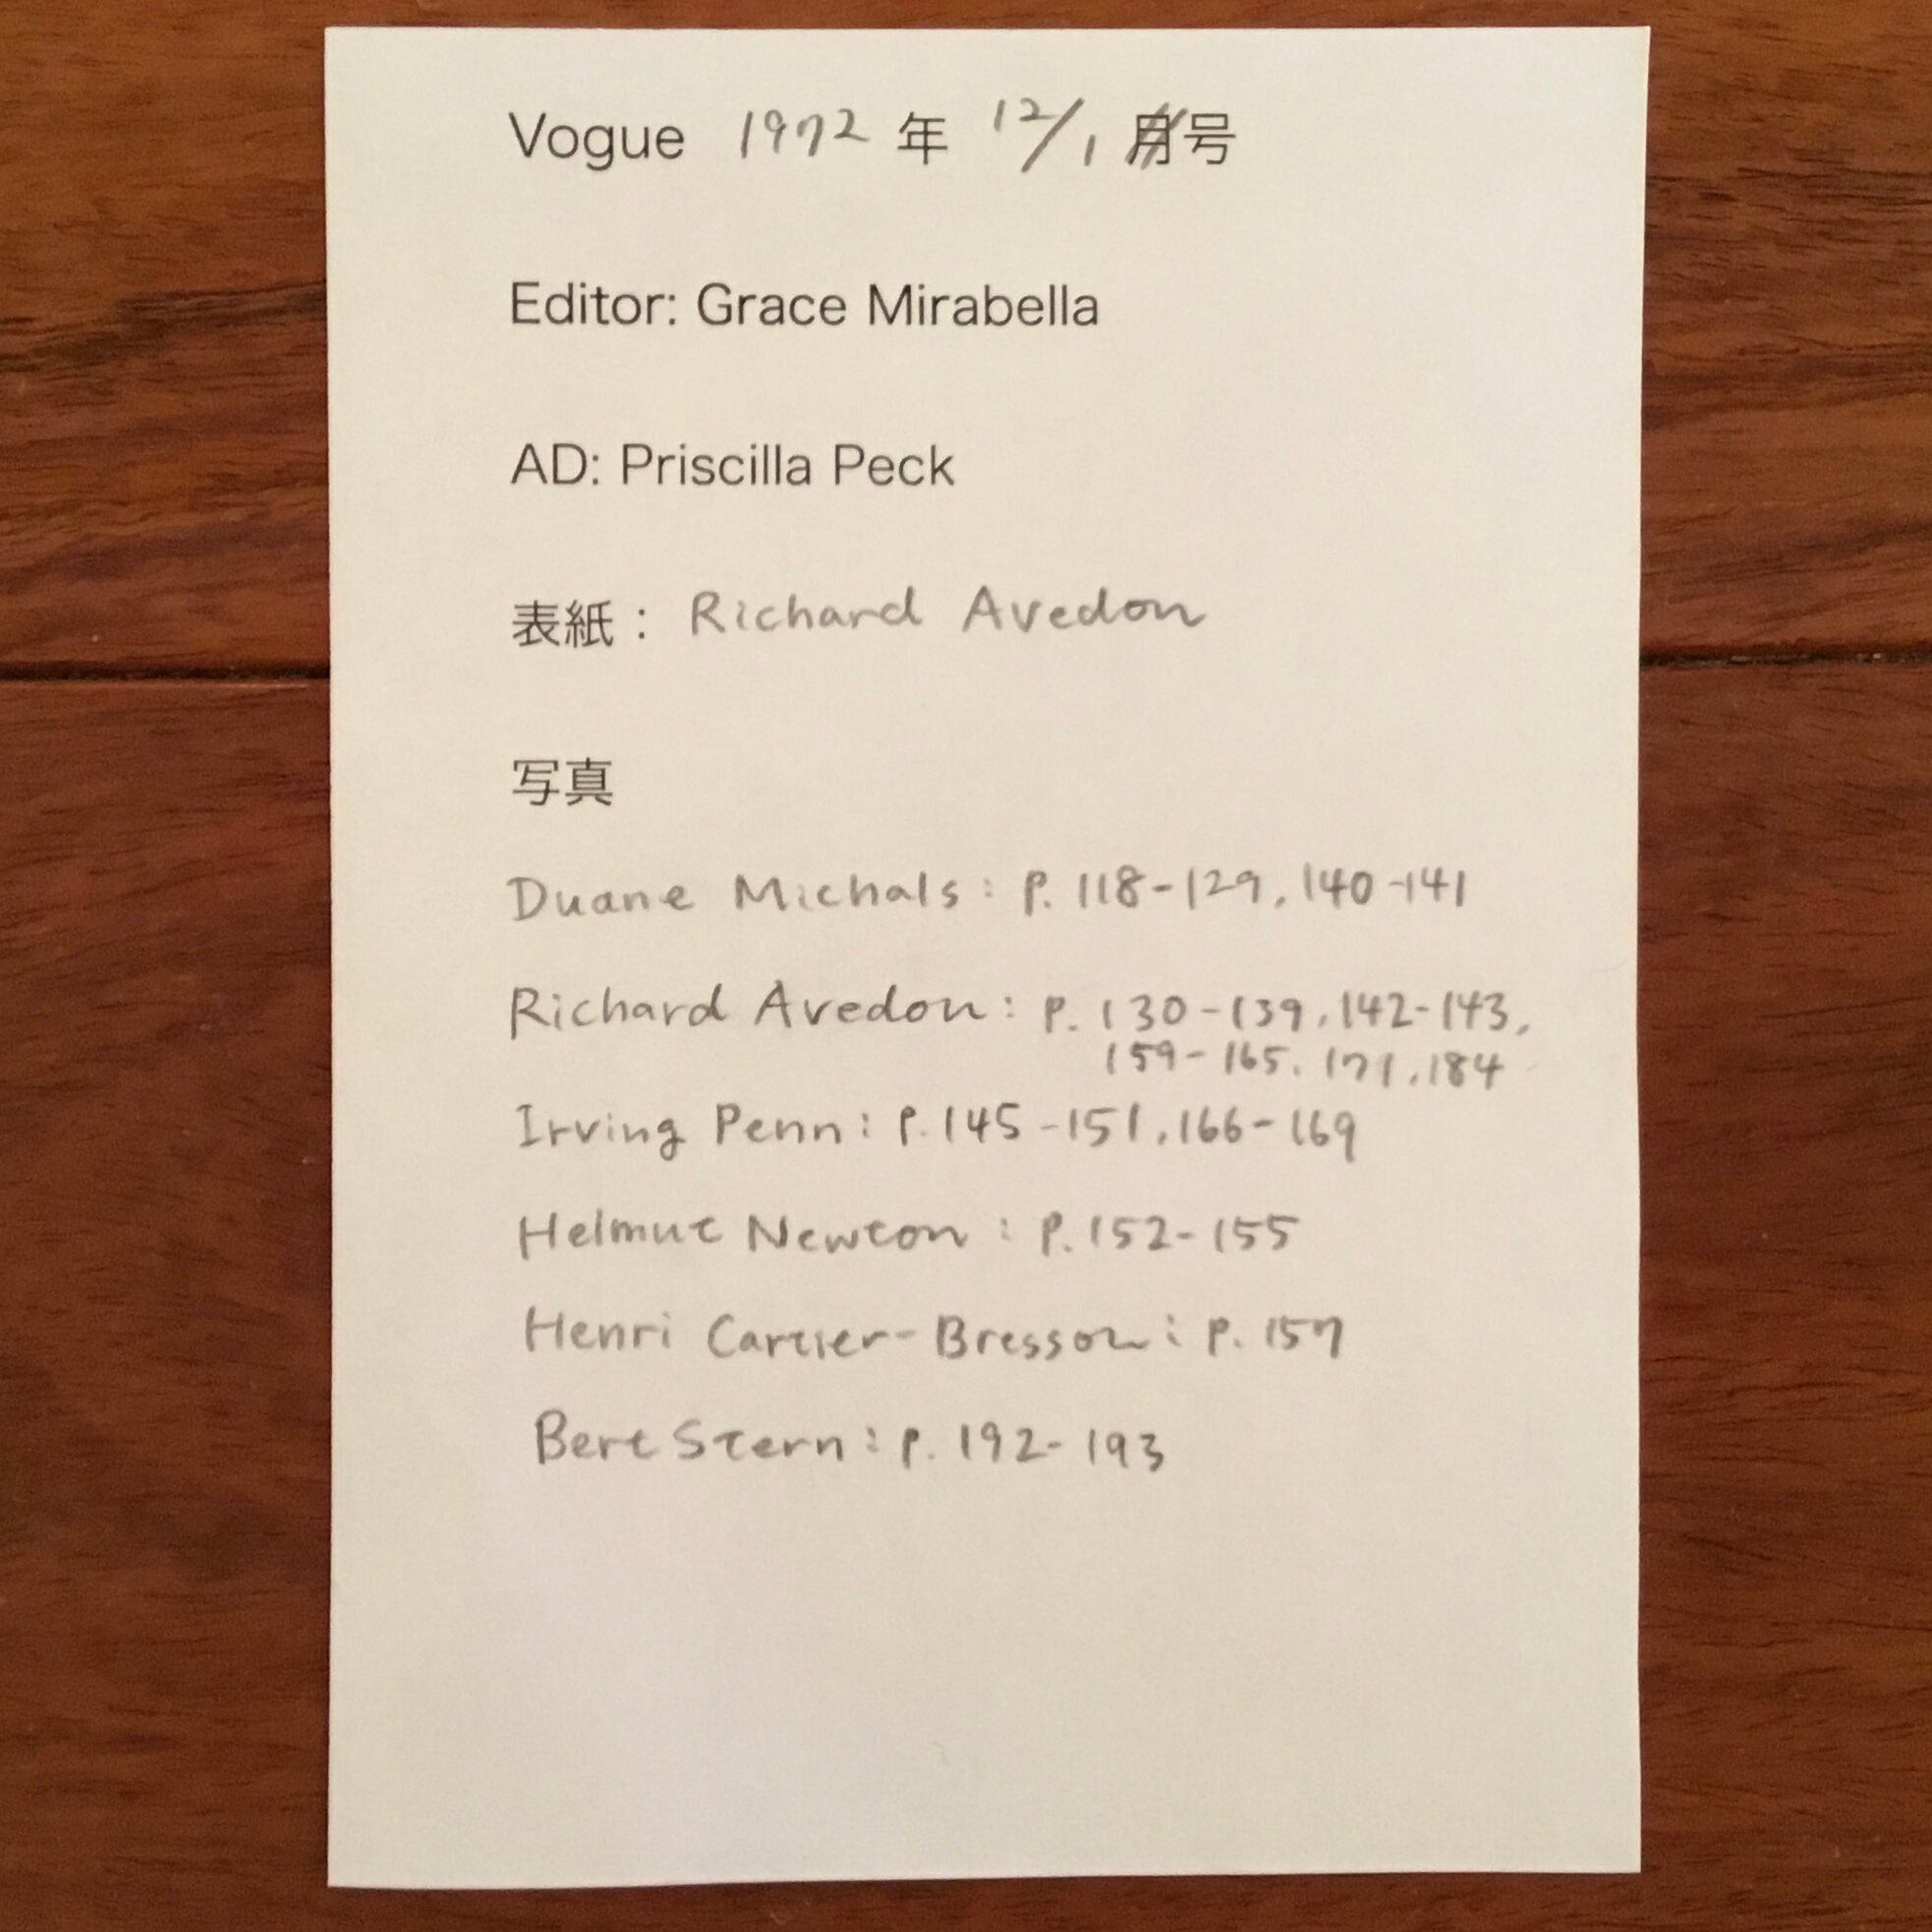 Vogue 1972 年 12/1 月号
Editor: Grace Mirabella
AD: Priscilla Peck
表紙： Richard Avedon
写真
Duane Michals: P. 118-129, 140-141
Richard Avedon: P. 130-139, 142-143,
159-165, 171, 184
Irving Penn: P. 145-151, 166-169
Helmut Newton: P. 152-155
Henri Cartier-Bresson: P. 157
Bert Stern: P. 192-193